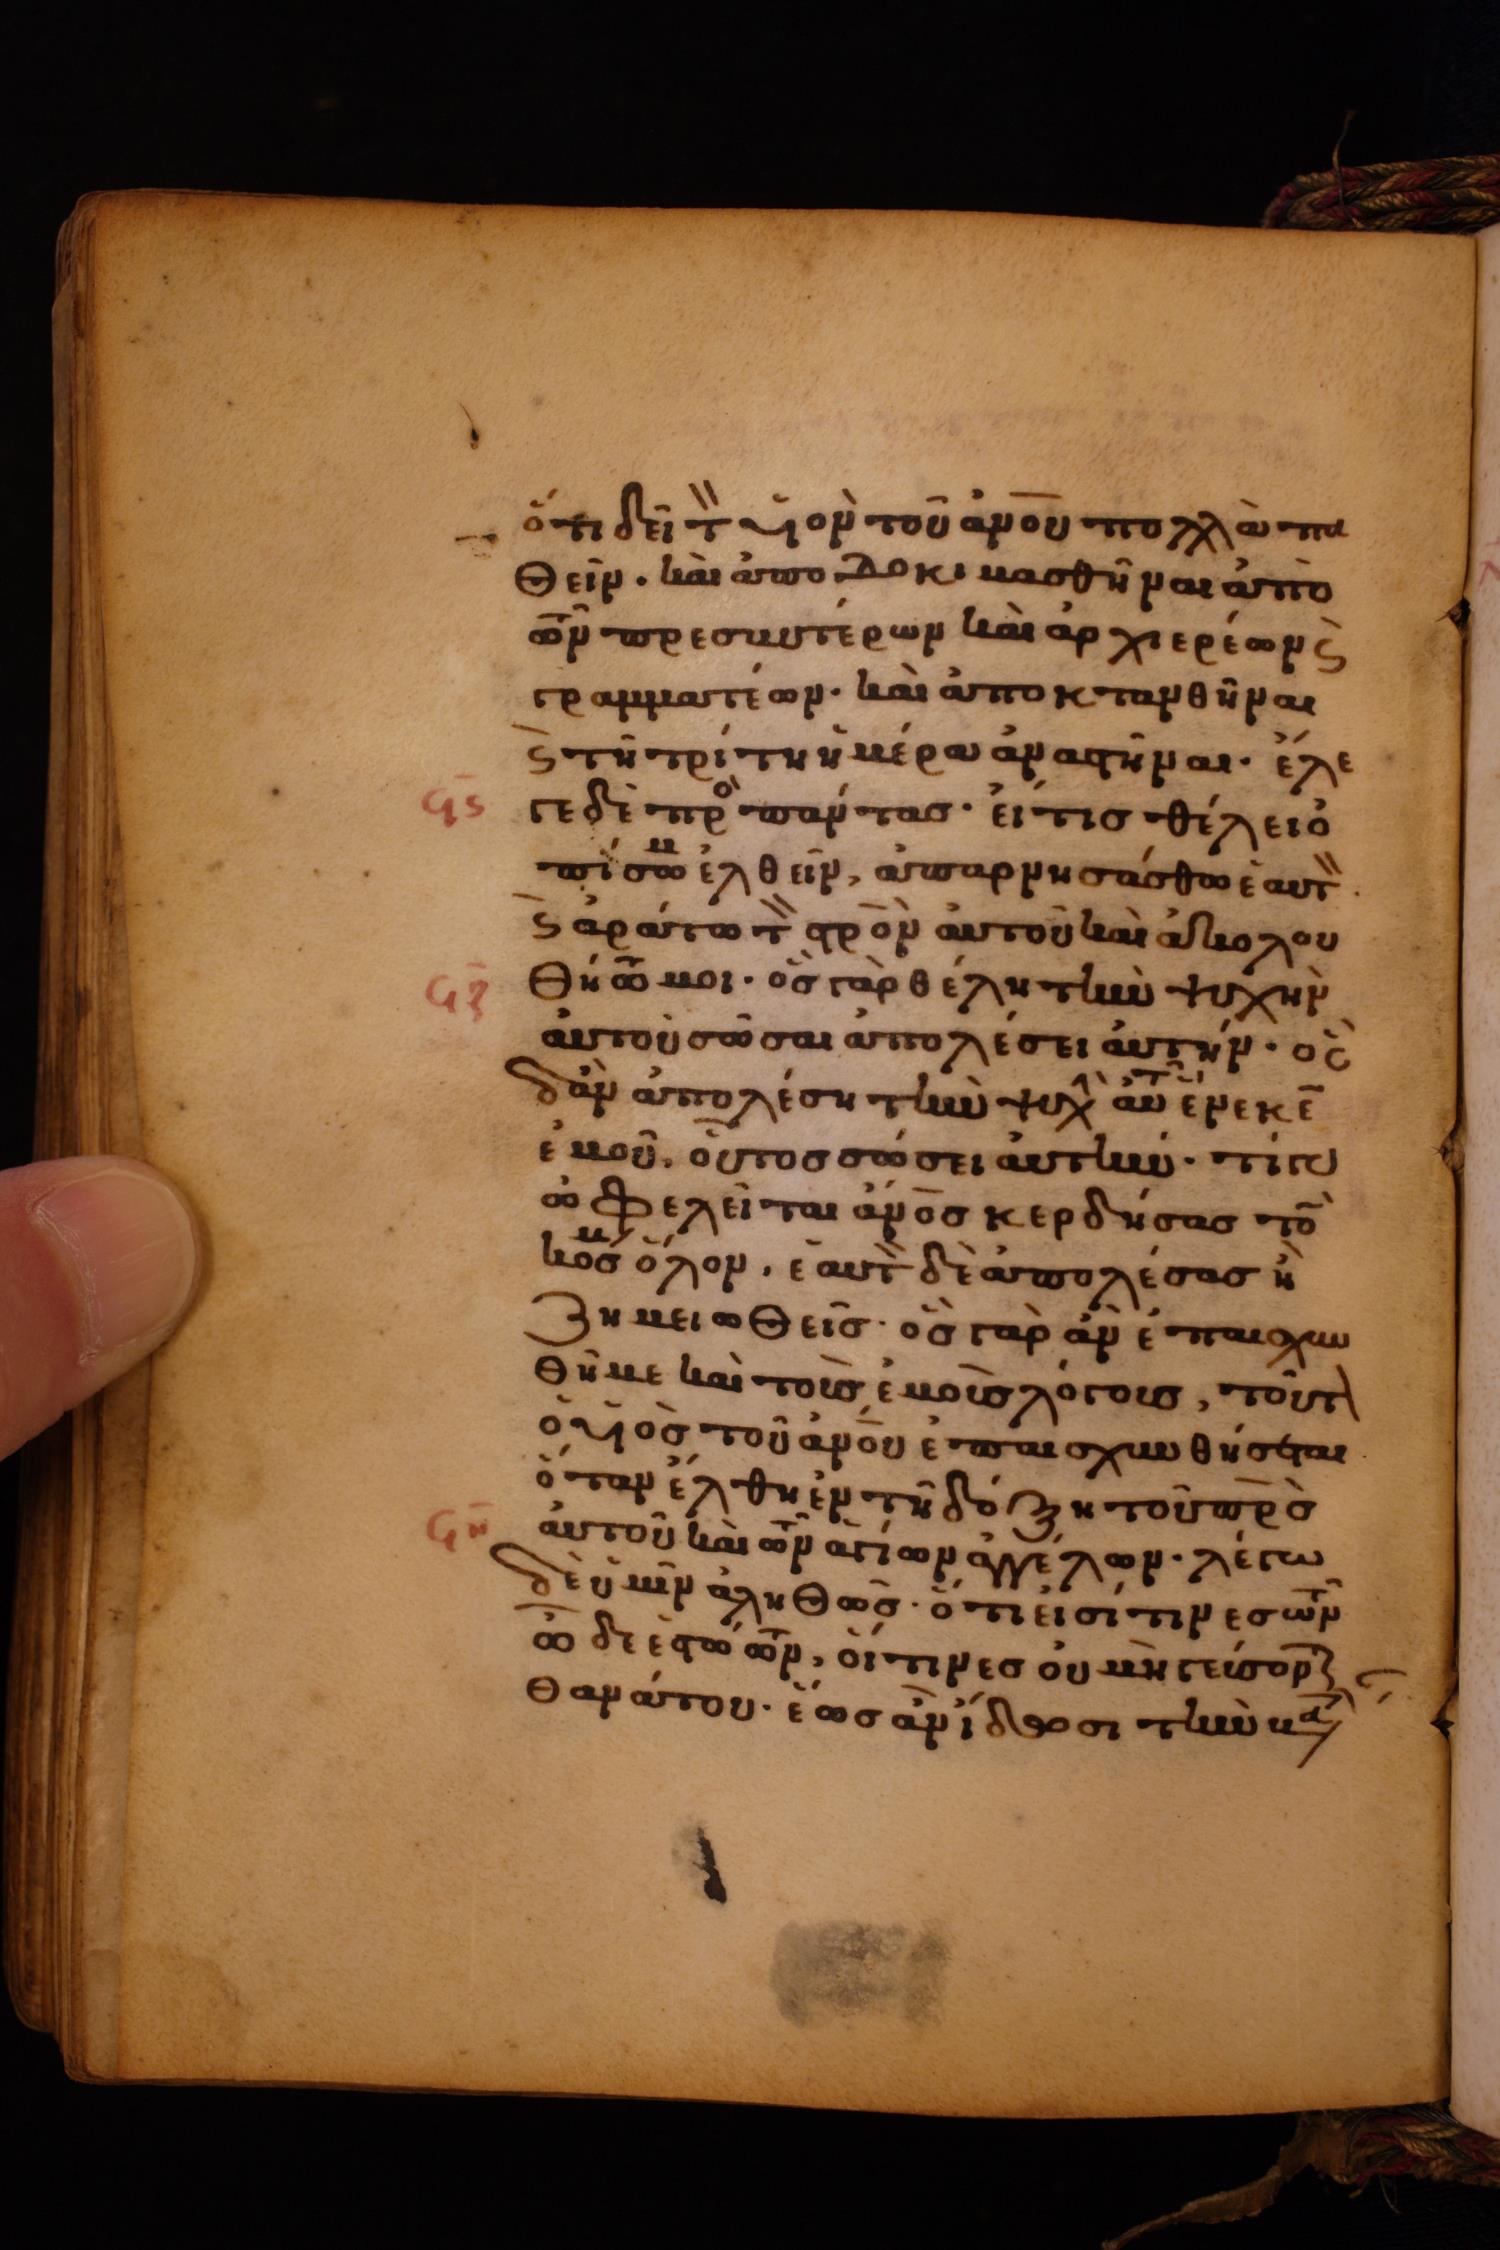 ὅτι δεῖ τ῀ ὑϊὸν τοῦ ἀν̅ο̅υ̅ πολλὰ πα
θεῖν. καὶ ἀποδοκιμασθῆναι ἀπὸ
τῶν πρεσβυτέρων καὶ ἀρχιερέων ϛ̀
γραμματέων· καὶ ἀποκτανθῆναι
ϛ̀ τῆ τρίτη ἡμέρα ἀναστῆναι· ἔλε
ϟϛ γε δὲ πρὸ πάντασ· εἴ τισ θέλει ὀ
πίσω μ ἐλθεῖν, ἀπαρνησάσθω ἑαυτ
ϛ̀ ἀράτω τ στρ̅ο̅ν̅ ἀυτοῦ καὶ ἀκολου
ϟζ θήτω μοι· ὃσ γὰρ θέλη τὴν ψυχὴν
ἀυτοῦ σῶσαι ἀπολέσει ἀυτήν· ὃσ
δἂν ἀπολέση τὴν ψυχ ἀυτ ἕνεκε̅
ἐμοῦ, οὗτοσ σώσει ἀυτήν· τί γ
ὠφελεῖται ἄν̅ο̅σ̅ κερδήσασ τὸ
κόσμ ὅλον, ἑαυτ δὲ ἀπολέσασ ἢ
ζημειωθεῖσ· ὃσ γὰρ ἂν ἐπαισχυν
θῆ με καὶ τοὺσ ἐμοὺσ λόγουσ, τοῦτ
ὁ ὑϊὸσ τοῦ ἀν̅ο̅υ̅ ἐπαισχυνθήσεται
ὅταν ἔλθη ἐν τῆ δόξη τοῦ π̅ρ̅σ̅
ἀυτοῦ καὶ τῶν ἁγίων ἀγγέλων· λέγω
ϟη δὲ ὑμῖν ἀληθῶσ· ὅτι ἐισί τινεσ τῶν
ὧδε ἑστώτων, οἵτινεσ οὐ μὴ γεύσοντ
θανάτου· ἕωσ ἂν ἴδωσι τὴν